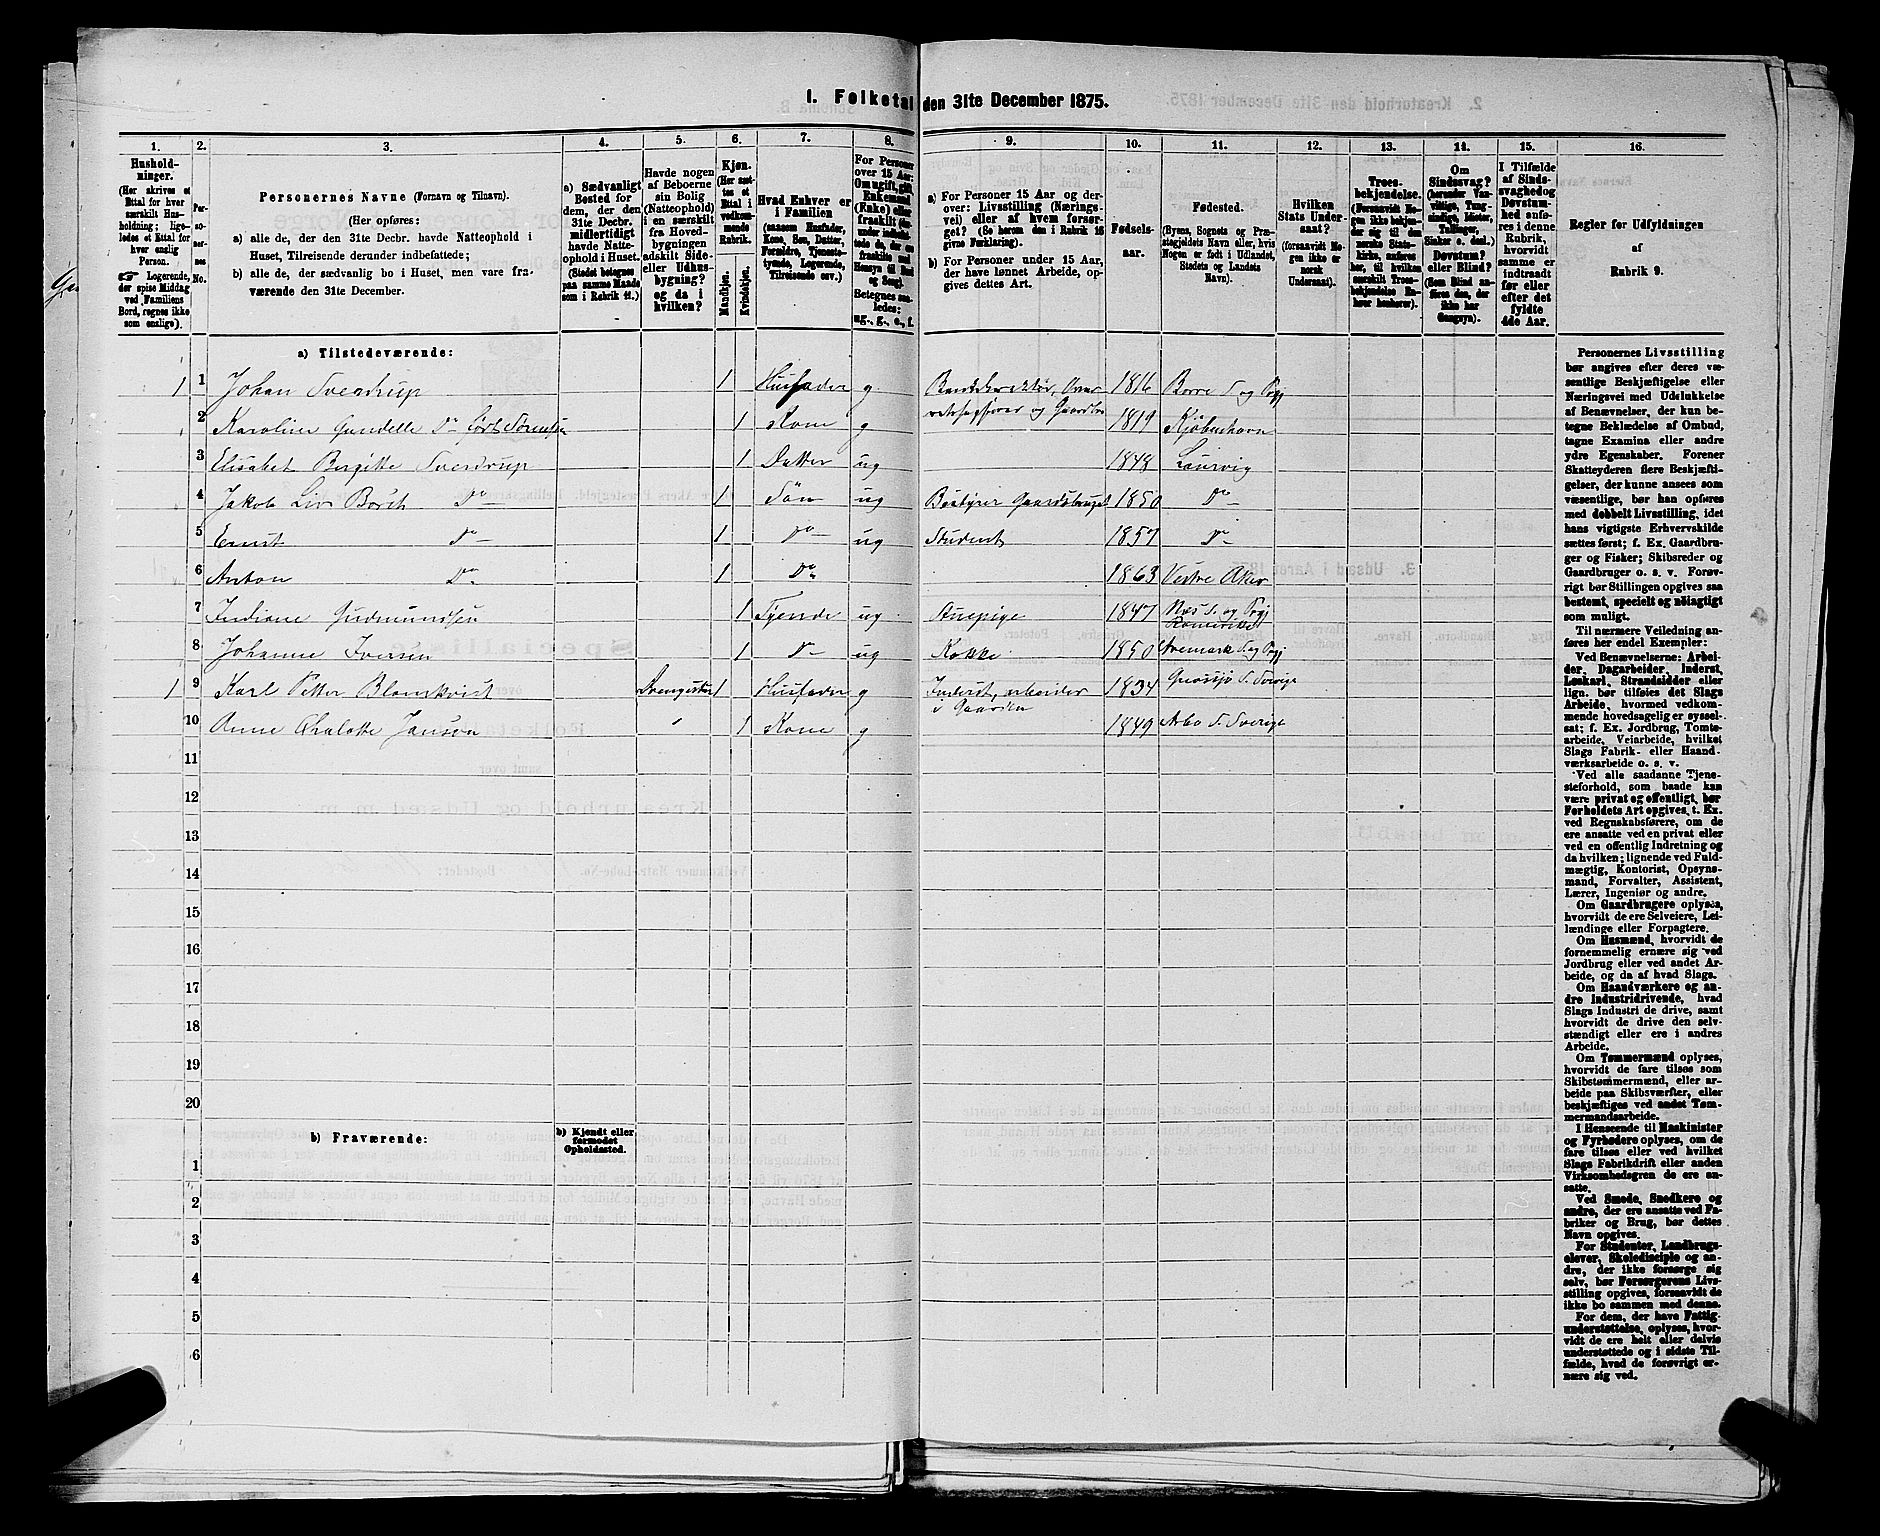 1. Folketal den 31te December 1875.
1. 2. 3. 4. 5. 6. 7. 8. 9. 10. 11. 12. 13. 14. 15. 16.
Hushold-
ninger.
(Her skrives et
Ettal for hver
særskilt Hus-
holdning; lige-
ledes et Ettal for
hver enslig
Person.
☞ Logerende,
der spise Middag
ved Familiens
Bord, regnes ikke
som enslige).
Per-
so-
ner-
nes
No.
Personernes Navne (Fornavn og Tilnavn).
(Her opføres:
a) alle de, der den 31te Decbr. havde Natteophold i
Huset, Tilreisende derunder indbefattede;
b) alle de, der sædvanlig bo i Huset, men vare fra-
værende den 31te December.
a) Sædvanligt
Bosted for
dem, der den
31te Decbr.
midlertidigt
havde Natte-
ophold i Huset.
(Stedet betegnes
paa samme Maade
som i Rubrik 11.)
Havde nogen
af Beboerne
sin Bolig
(Natteophold)
i en særskilt
fra Hoved-
bygningen
adskilt Side-
eller Udhus-
bygning?
og da i
hvilken?
Kjøn.
(Her sæt-
tes et
Ettal i
vedkom-
mende
Rubrik.
Mandkjøn.
Kvindekjøn.
Hvad Enhver er
i Familien
(saasom Husfader,
Kone, Søn, Datter,
Forældre, Tjeneste-
tyende, Logerende,
Tilreisende osv.)
For Personer
over 15 Aar:
Om ugift, gift,
Enkemand
(Enke) eller
fraskilt (her-
under indbefat-
tede de, der ere
fraskilte med
Hensyn til Bord
og Seng).
Betegnes saa-
ledes:
ug., g., e., f.
a) For Personer 15 Aar og der-
over: Livsstilling (Nærings-
vei) eller af hvem forsør-
get? (Se herom den i Rubrik 16
givne Forklaring).
b) For Personer under 15 Aar,
der have lønnet Arbeide, op-
gives dettes Art.
Fødsels-
aar.
Fødested.
(Byens, Sognets og Præ-
stegjeldets Navn eller, hvis
Nogen er født i Udlandet,
Stedets og Landets
Navn).
Hvilken
Stats Under-
saat?
(forsaavidt No-
gen ikke er
norsk
Undersaat).
Troes-
bekjendelse.
(Forsaavidt No-
gen ikke bekjen-
der sig til den
norske Stats-
kirke, anføres
her, til hvilken
særskilt Troes-
bekjendelse En-
hver henhører).
Om
Sindssvag?
(herunder Van-
vittige, Tung-
sindige, Idioter,
Tullinger,
Sinker o. desl.)
Døvstum?
eller Blind? (Som Blind an-
føres den, der
ikke har
Gangsyn).
I Tilfælde
af Sinds-
svaghed og
Døvstum-
hed anfø-
res i denne
Rubrik,
hvorvidt
samme er
indtraadt
før eller
efter det
fyldte
4de Aar.
Regler for Udfyldningen
af
Rubrik 9.
a) Tilstedeværende:
1 1 Johan Sverdrup 1 Husfader g 1816 Borre S. og Pgj
2 Karoline 1 Kone g 1819 Kjøbenhavn
3 Elisabet Birgitte Sverdrup 1 Datter ug 1848 Laurvig
4 Jakob Liv Borch Do 1 Søn ug Bestyrer Gaardsbruget 1850 Do
5 Ernst Do 1 Do ug Student 1857 Do
6 Anton Do 1 Do 1863 Vestre Aker
7 Indiane Gudmundsen 1 Tyende ug Stuepige 1847 Næs S. og Pgj Romerike
8 Johanne Iversen 1 Do ug Kokke 1850 Aremark S. og Pgj
1 9 Karl Petter Blomkvist Drengestue 1 Husfader g Inderst, arbeider
i Gaarden 1834 S. Sverige
10 Anne Chalotte Janson 1 Kone g 1849 Arbo S. Sverige
11
12
13
14
15
16
17
18
19
20
b) Fraværende:
b) Kjendt eller
formodet
Opholdssted.
1
2
3
4
5
6
Personernes Livsstilling
bør angives efter deres væ-
sentlige Beskjæftigelse eller
Næringsvei med Udelukkelse
af Benævnelser, der kun be-
tegne Beklædelse af Ombud,
tagne Examina eller andre
ydre Egenskaber. Forener
Skatteyderen flere Beskjæfti-
gelser, der kunne ansees som
væsentlige, bør han opføres
med dobbelt Livsstilling, idet
hans vigtigste Erhvervskilde
sættes først; f. Ex. Gaardbru-
ger og Fisker; Skibsreder og
Gaardbruger o. s. v. Forøv-
rigt bør Stillingen opgives saa
bestemt, specielt og nøiagtigt
som muligt.
Til nærmere Veiledning an-
føres her endel Exempler:
Ved Benævnelserne: Arbei-
der, Dagarbeider, Inderst,
Løskarl, Strandsidder eller
lign. bør tilføies det Slags
Arbeide, hvormed vedkom-
mende hovedsagelig er syssel-
sat; f. Ex. Jordbrug, Tomte-
arbeide, Veiarbeide, hvilket
Slags Fabrik- eller Haand-
værksarbeide o. s. v.
Ved alle saadanne Tjene-
steforhold, som baade kan
være privat og offentligt, bør
Forholdets Art opgives, t. Ex.
ved Regnskabsførere, om de
ere ansatte ved en privat eller
ved en offentlig Indretning og
da hvilken; lignende ved Fuld-
mægtig, Kontorist, Opsyns-
mand, Forvalter, Assistent,
Lærer, Ingeniør og andre.
Om Gaardbrugere oplyses,
hvorvidt de ere Selveiere, Lei-
lændinge eller Forpagtere.
Om Husmænd, hvorvidt de
fornemmelig ernære sig ved
Jordbrug eller ved andet Ar-
beide, og da af hvad Slags.
Om Haandværkere og an-
dre Industridrivende, hvad
Slags Industri de drive, samt
hvorvidt de drive den selv-
stændigt eller ere i andres
Arbeide.
Om Tømmermænd oplyses,
hvorvidt de fare tilsøs som
Skibstømmermænd, eller ar-
beide paa Skibsværfter, eller
beskjæftiges ved andet Tøm-
mermandsarbeide.
I Henseende til Maskinister
og Fyrbødere oplyses, om de
fare tilsøs eller ved hvilket
Slags Fabrikdrift eller anden
Virksomhedsgren de ere an-
satte.
Ved Smede, Snedkere og
andre, der ere ansatte ved Fa-
briker og Brug, bør dettes
Navn opgives.
For Studenter, Landbrugs-
elever, Skoledisciple og an-
dre, der ikke forsørge sig
selv, bør Forsørgerens Livs-
stilling opgives, forsaavidt de
ikke bo sammen med denne.
For dem, der have Fattig-
understøttelse, oplyses, hvor-
vidt de ere helt eller delvis
understøttede og i sidste Til-
fælde, hvad de forøvrigt er-
nære sig ved.